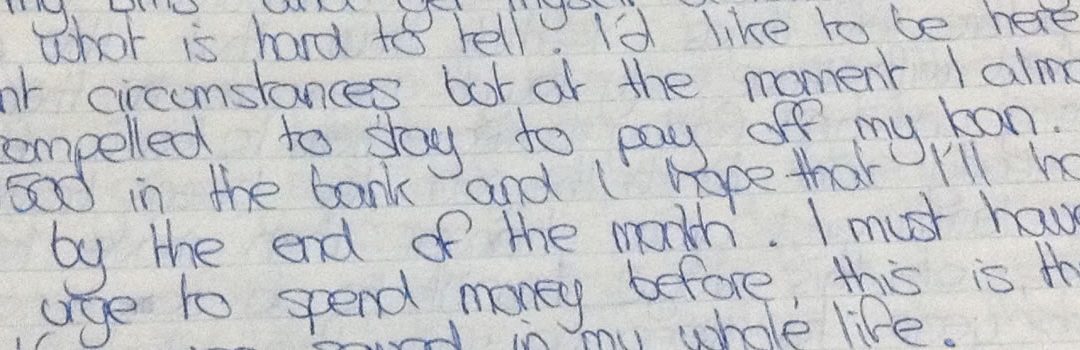 my and get myself
what is hard to tell. I'd like to be here
nt circumstances but at the moment I almo
ompelled to stay to pay off my loan.
500 in the bank and I hope that I'll ha
by the end of the month. I must have
urge to spend money before, this is th
in my whole life.